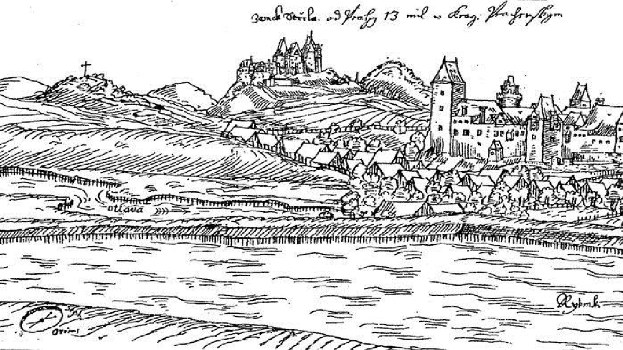 Zamek Střela. od Prahy 13 mil w Krag. Prachenskym
ottava
Rybnik